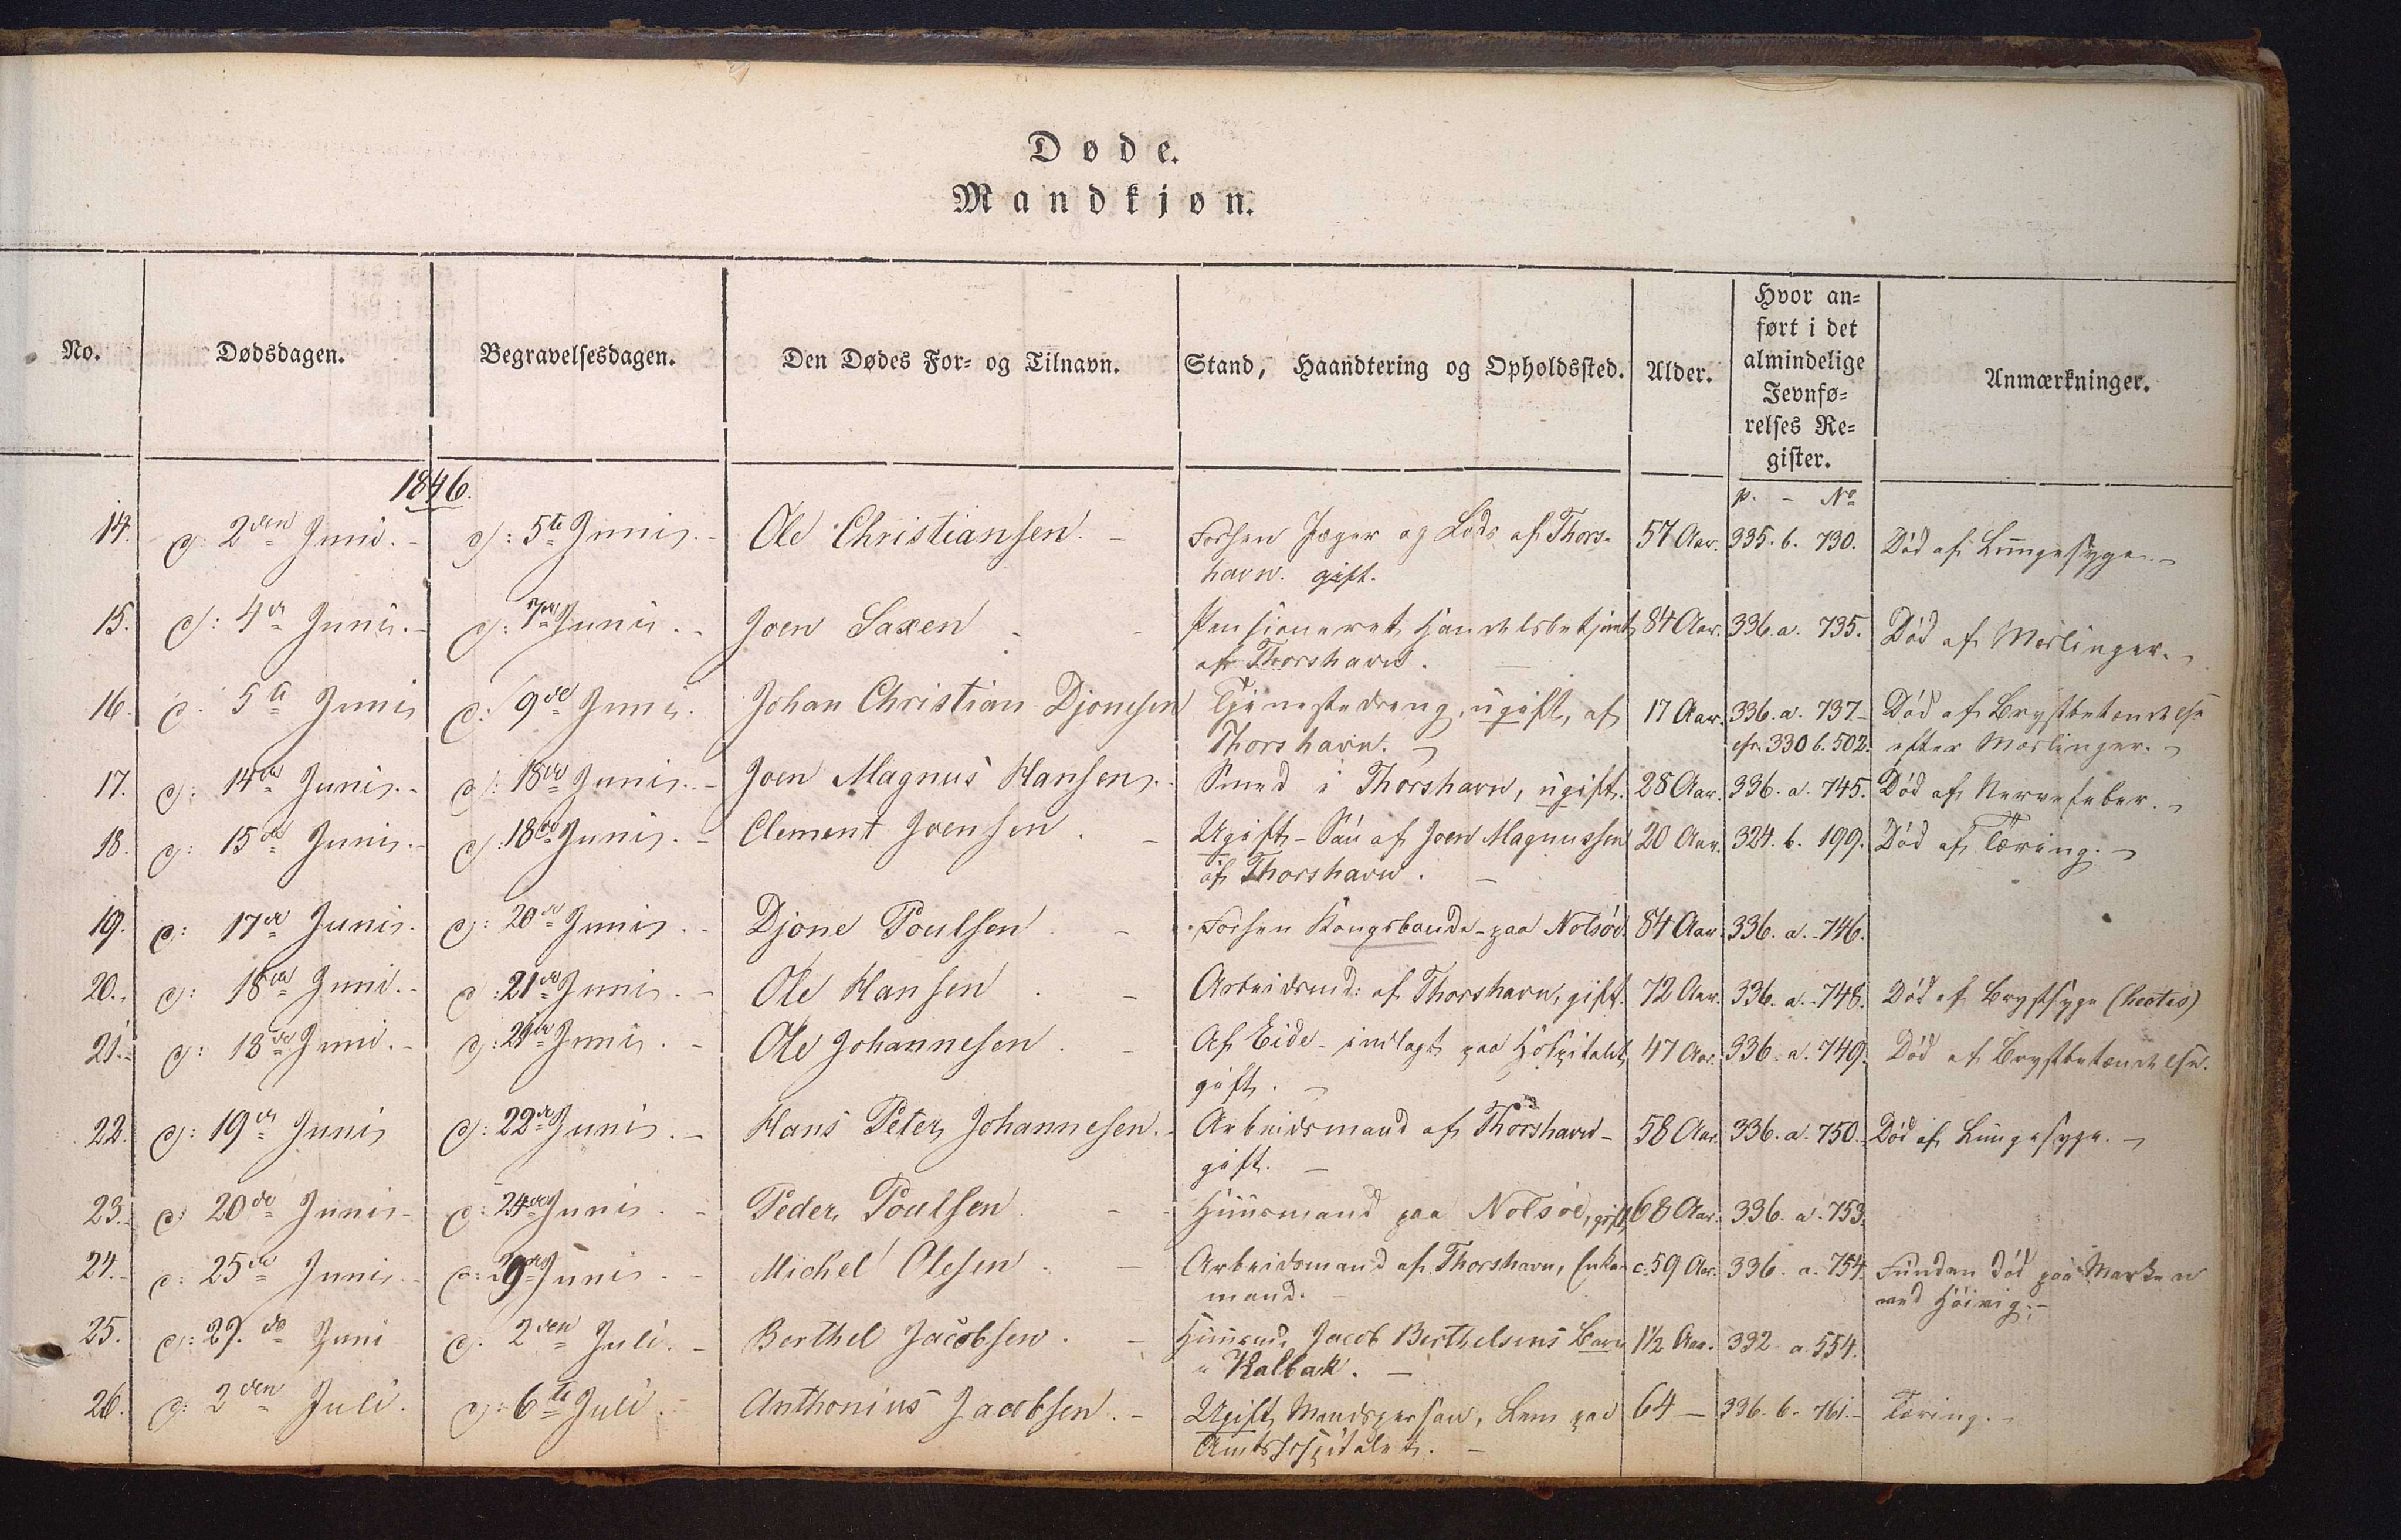 Døde.
Mandkjøn.
No. Dødsdagen. Begravelsesdagen. Den Dødes For- og Tilnavn. Stand, Haandtering og Opholdssted. Alder. Hvor an-
ført i det
almindelige
Jevnfø-
relses Re-
gister. Anmærkninger.
1846. p. - No
14. d: 2den Juni. - d: 5te Junii. - Ole Christiansen. - Forhen Jæger og Lods af Thors- 57 Aar. 335. b. 730. Død af Lungesyge. -
havn. gift.
15. d: 4de Junii. - d: 7de Junii. - Joen Saxen - - Pensioneret Handelsbetjent 84 Aar. 336. a. 735. Død af Mæslinger. -
af Thorshavn. -
16. d: 5te Junii d: 9de Junii. Johan Christian Djonesen Tjenestedreng, ugift, af 17 Aar. 336. a. 737- Død af Brystbetændelse
Thorshavn. - cfr. 330 b. 502. efter Mæslinger. -
17. d: 14de Junii. - d: 18de Junii. - Joen Magnus Hansen. - Smed i Thorshavn, ugift. 28 Aar. 336. a. 745. Død af Nervefeber. -
18. d: 15de Junii. - d: 18de Junii. - Clement Joensen. - Ugift - Søn af Joen Magnussen 20 Aar. 324. b. 199. Død af Tæring. -
af Thorshavn. -
19. d: 17de Junii. d: 20de Junii. - Djone Poulsen - Forhen Kongsbonde - paa Nolsøe. 84 Aar. 336. a. 746.
20. d: 18de Juni. - d: 21de Junii. - Ole Hansen. - Arbeidsmd: af Thorshavn, gift. 72 Aar. 336. a. 748. Død af Brystsyge (hectis)
21. - d: 18de Juni. - d: 21de Junii. - Ole Johannesen. - Af Eide - indlagt paa Hospitalet, 47 Aar. 336. a. 749. Død af Brystbetændelse.
gift. -
22. d: 19de Junii d: 22de Junii. - Hans Peter Johannesen. - Arbeidsmand af Thorshavn - 58 Aar. 336. a. 750. Død af Lungesyge. -
gift. -
23. - d: 20de Junii - d: 24de Junii. - Peder Poulsen. - - Huusmand paa Nolsöe, gift, 68 Aar. 336. a. 753.
24. - d: 25de Junii - d: 29de Junii. - Michel Olesen. - Arbeidsmand af Thorshavn, Enke- c. 59 Aar. 336. a. 754. Funden død paa Marken
mand. - ved Höivig. -
25. d: 29. de Juni d: 2den Juli. - Berthel Jacobsen. - Huusmd. Jacob Berthelsens Barn 1½ Aar. 332 a. 554.
i Kalbak. -
26. d: 2den Juli. d: 6te Juli. - Anthonius Jacobsen. - Ugift Mandsperson, Lem paa 64 - 336. b. 761. - Tæring. -
Amtshospitalet. -